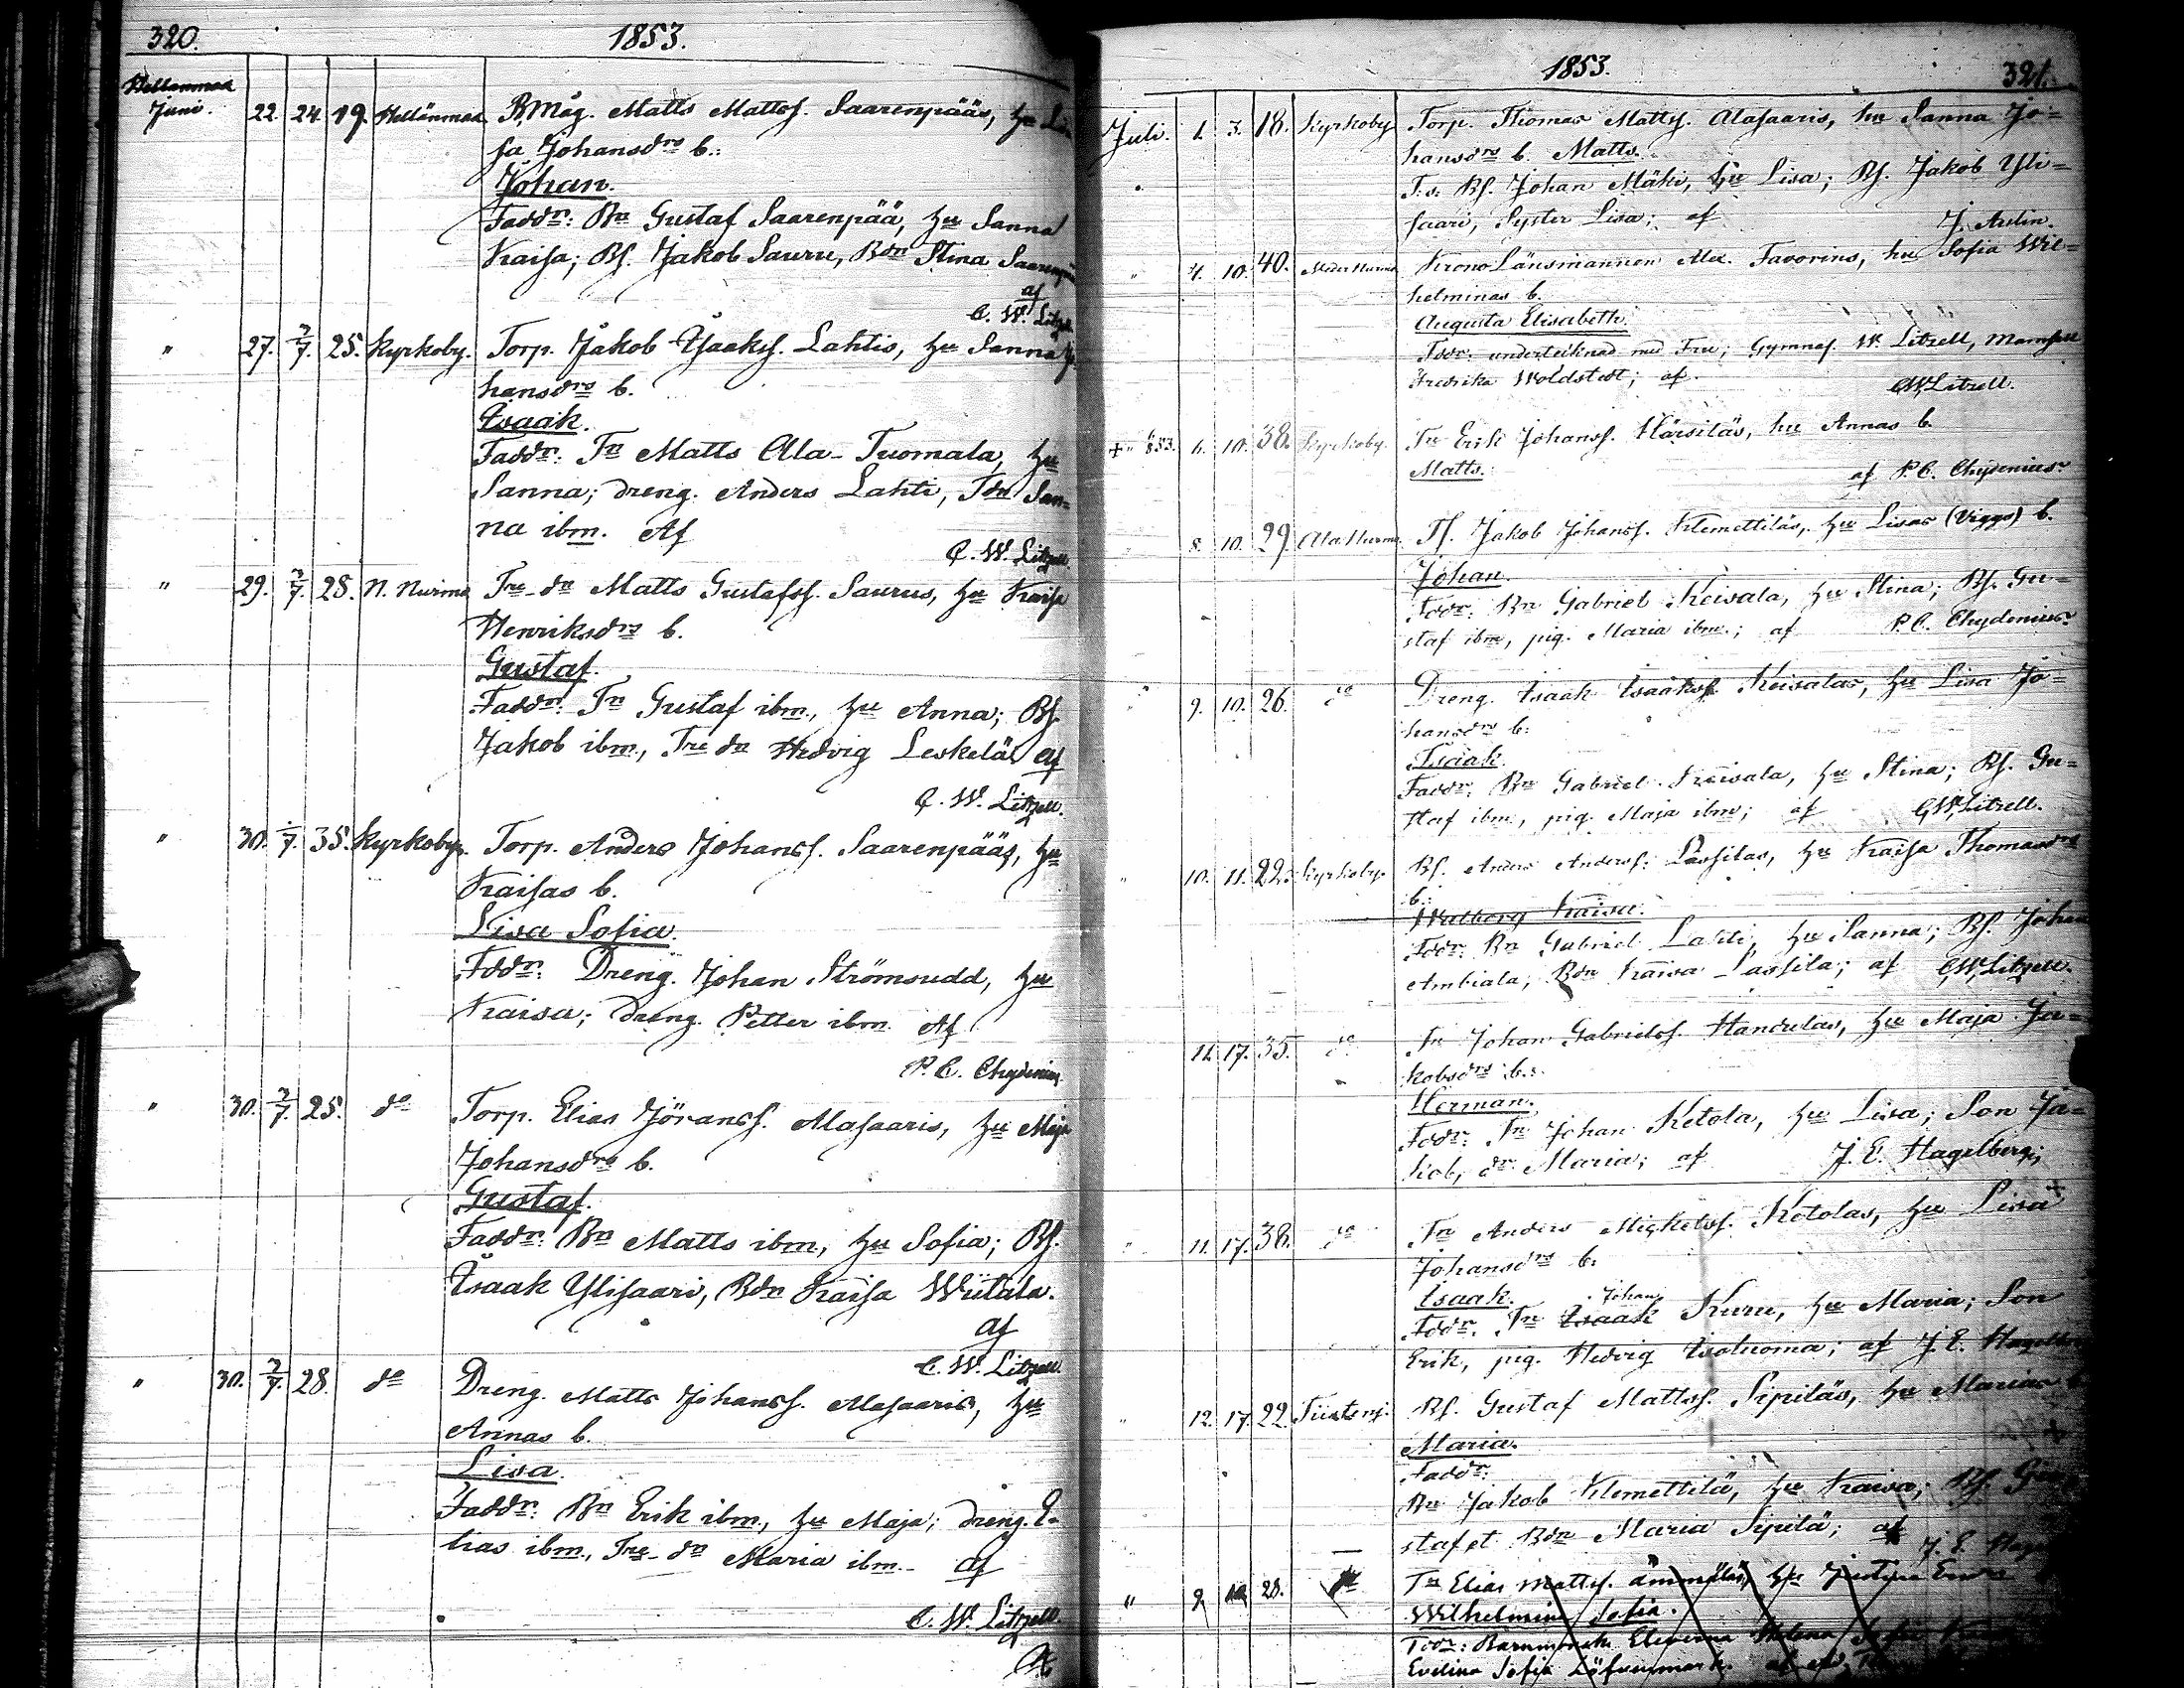 320.
1853.
Juni. 22. 24. 19. Hellänmaa Bmåg. Matts Mattss. Saarenpääs, hu Li
sa Johansdrs b.:
Johan.
Faddr: Bn Gustaf Saarenpää, hu Sanna
Kaisa; Bs. Jakob Sauru, Bdn Stina
af
C. W. Litzell
" 27. 3/7. 25. Kyrkoby. Torp. Jakob Isaakss. Lahtis, hu Sanna Jo
hansdrs b.
Isaak.
Faddr: Tn Matts Ala-Tuomala, hu
Sanna; dreng. Anders Lahti, Tdn San=
na ibm. Af
C. W. Litzell.
" 29. 3/7. 28. N. Nurmo Tre-dn Matts Gustafss. Saurus, hu Kaisa
Henriksdrs b.
Gustaf.
Faddr: Tn Gustaf ibm., hu Anna; Bs.
Jakob ibm., Tre dn Hedvig Leskelä af
C. W. Litzell.
" 30. 35. Kyrkoby. Torp. Anders Johanss. Saarenpääs, hu
Kaisas b.
Lisa Sofia.
Fddr: Dreng. Johan Strömsudd, hu
Kaisa; dreng. Petter ibm. Af
P. C. Chydenius
" 30. 3/7. 25. do Torp. Elias Jöranss. Alasaaris, hu Maja
Johansdrs b.
Gustaf.
Faddr: Bn Matts ibm., hu Sofia; Bs.
Isaak Ylisaari, Bdn Kaisa Wiitala.
af
C. W. Litzell.
" 30. 3/7. 28. do Dreng. Matts Johanss. Alasaaris, hu
Annas b.
Lisa.
Faddr: Bn Erik ibm., hu Maja; dreng. E-
lias ibm., Tre-dn Maria ibm. - af
C. W. Litzell.
1853.
321.
Juli. 1. 3. 18. Kyrkoby Torp. Thomas Mattss. Alasaaris, hu Sanna Jo=
hansdrs b. Matts.
T.s. Bs. Johan Mäki, hu Lisa; Bs. Jakob Yli=
saari, Syster Lisa; af J. Aulin.
" 4. 10. 40. Krono Länsmannen Alex. Favorins, hu Sofia Wil=
helminas b.
Augusta Elisabeth.
Fddr: undertecknad med Fru; Gymnas. W. Litzell, Mamsell
Fredrika Woldstedt; af C W Litzell.
+ " 853. 6. 10. 38. Kyrkoby. Tn Erik Johanss. Härsiläs, hu Annas b.
Matts. af P. C. Chydenius
8. 10. 29 Ala Nurmo. Ts. Jakob Johanss. Klemettiläs, hu Lisas (Viggs) b.
Johan.
Fddr. Bn Gabriel Keisala, hu Stina; Bs. Gu=
staf ibm, pig. Maria ibm.; af P. C. Chydenius
" 9. 10. 26. do Dreng. Isaak Isaakss. Keisalas, hu Lisa Jo=
hansdrs b:
Isaak.
Faddr: Bn Gabriel Keisala, hu Stina; Bs. Gu=
staf ibm., pig. Maja ibm; af C W Litzell.
" 10. 11. 22. Kyrkoby. Bs. Anders Anderss. Lassilas, hu Kaisa Thomasdrs
b.:
Walborg Kaisa.
Fddr: Bn Gabriel Lahti, hu Sanna; Bs. Johan
Ambiala; Bdn Kaisa Lassila; af C W Litzell.
11. 17. 35. do Tn Johan Gabrielss. Handulas, hu Maja Ja=
kobsdrs b.:
Herman.
Fddr: Tn Johan Ketola, hu Lisa; Son Ja=
kob, dr Maria; af J. E. Hagelberg;
" 11. 17. 38. do Tn Anders Michelss. Ketolas, hu Lisa
Johansdrs b:
Isaak.
Johan
Fddr: Tn Isaak Kuru, hu Maria; Son
Erik, pig. Hedvig Isoluoma; af J. E.
" 12. 17. 22. Bs. Gustaf Mattss. Sipiläs, hu Marias b
Maria.
Faddr:
Bn Jakob Klemettilä, hu Kaisa; Bs. Gu
staf et Bdn Maria Sipilä; af J. E.
" 9. 28. Tn Elias Mattss. Ämmäläs, hu Justina
Wilhelmina Sofia.
Fddr:
Evelina Sofia